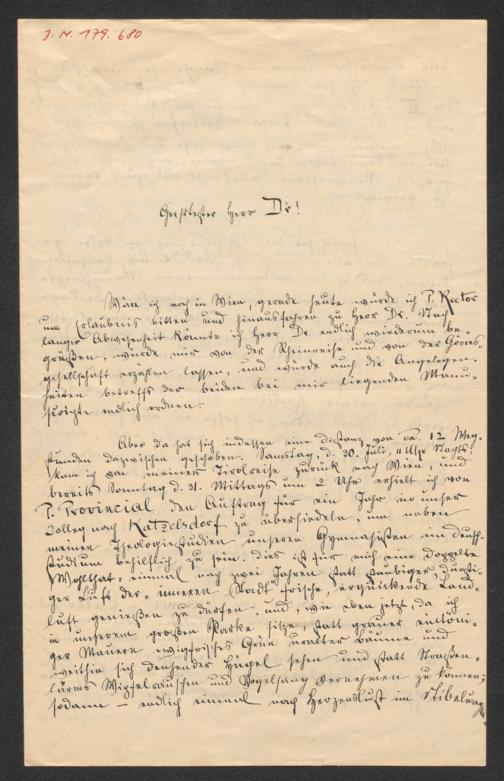 J. N. 179.680
Geehrtester Herr Dr!
Wäre ich noch in Wien, gerade heute würde ich P. Rector
um Erlaubnis bitten und hinausfahren zu Herr Dr. Nach
langer Abwesenheit könnte ich Herr Dr endlich wiederum be-
grüßen, würde mir von der Rheinreise und von der Görres-
gesellschaft erzählen lassen, und würde auch die Angelegen-
heiten betreffs der beiden bei mir liegenden Manu-
skripte endlich ordnen.
Aber da hat sich indessen eine Distanz von ca. 12 Weg-
stunden dazwischen geschoben. Samstag, d. 30. Juli, 11 Uhr Nachts
kam ich von meiner Tirolreise zurück nach Wien, und
bereits Sonntag d. 31. Mittags um 2 Uhr erhielt ich von
P. Provincial den Auftrag für ein Jahr in unser
Colleg nach Katzelsdorf zu übersiedeln, um neben
meinen Theologiestudien unseren Gymnasisten im Deutsch-
studium behilflich zu sein. Dies ist für mich eine doppelte
Wohlthat: einmal nach zwei Jahren statt staubiger, dunsti-
ger Luft der "inneren Stadt" frische, erquickende Land-
luft genießen zu dürfen, und, wie eben jetzt, da ich
in unserem großen Parke sitze, statt grauer eintöni-
ger Mauern ewigfrisches Grün uralter Bäume und
weithin sich dehnender Hügel sehen und statt Straßen-
lärms Wipfelrauschen und Vogelsang vernehmen zu können;
sodann – endlich einmal nach Herzenslust im Nibelung